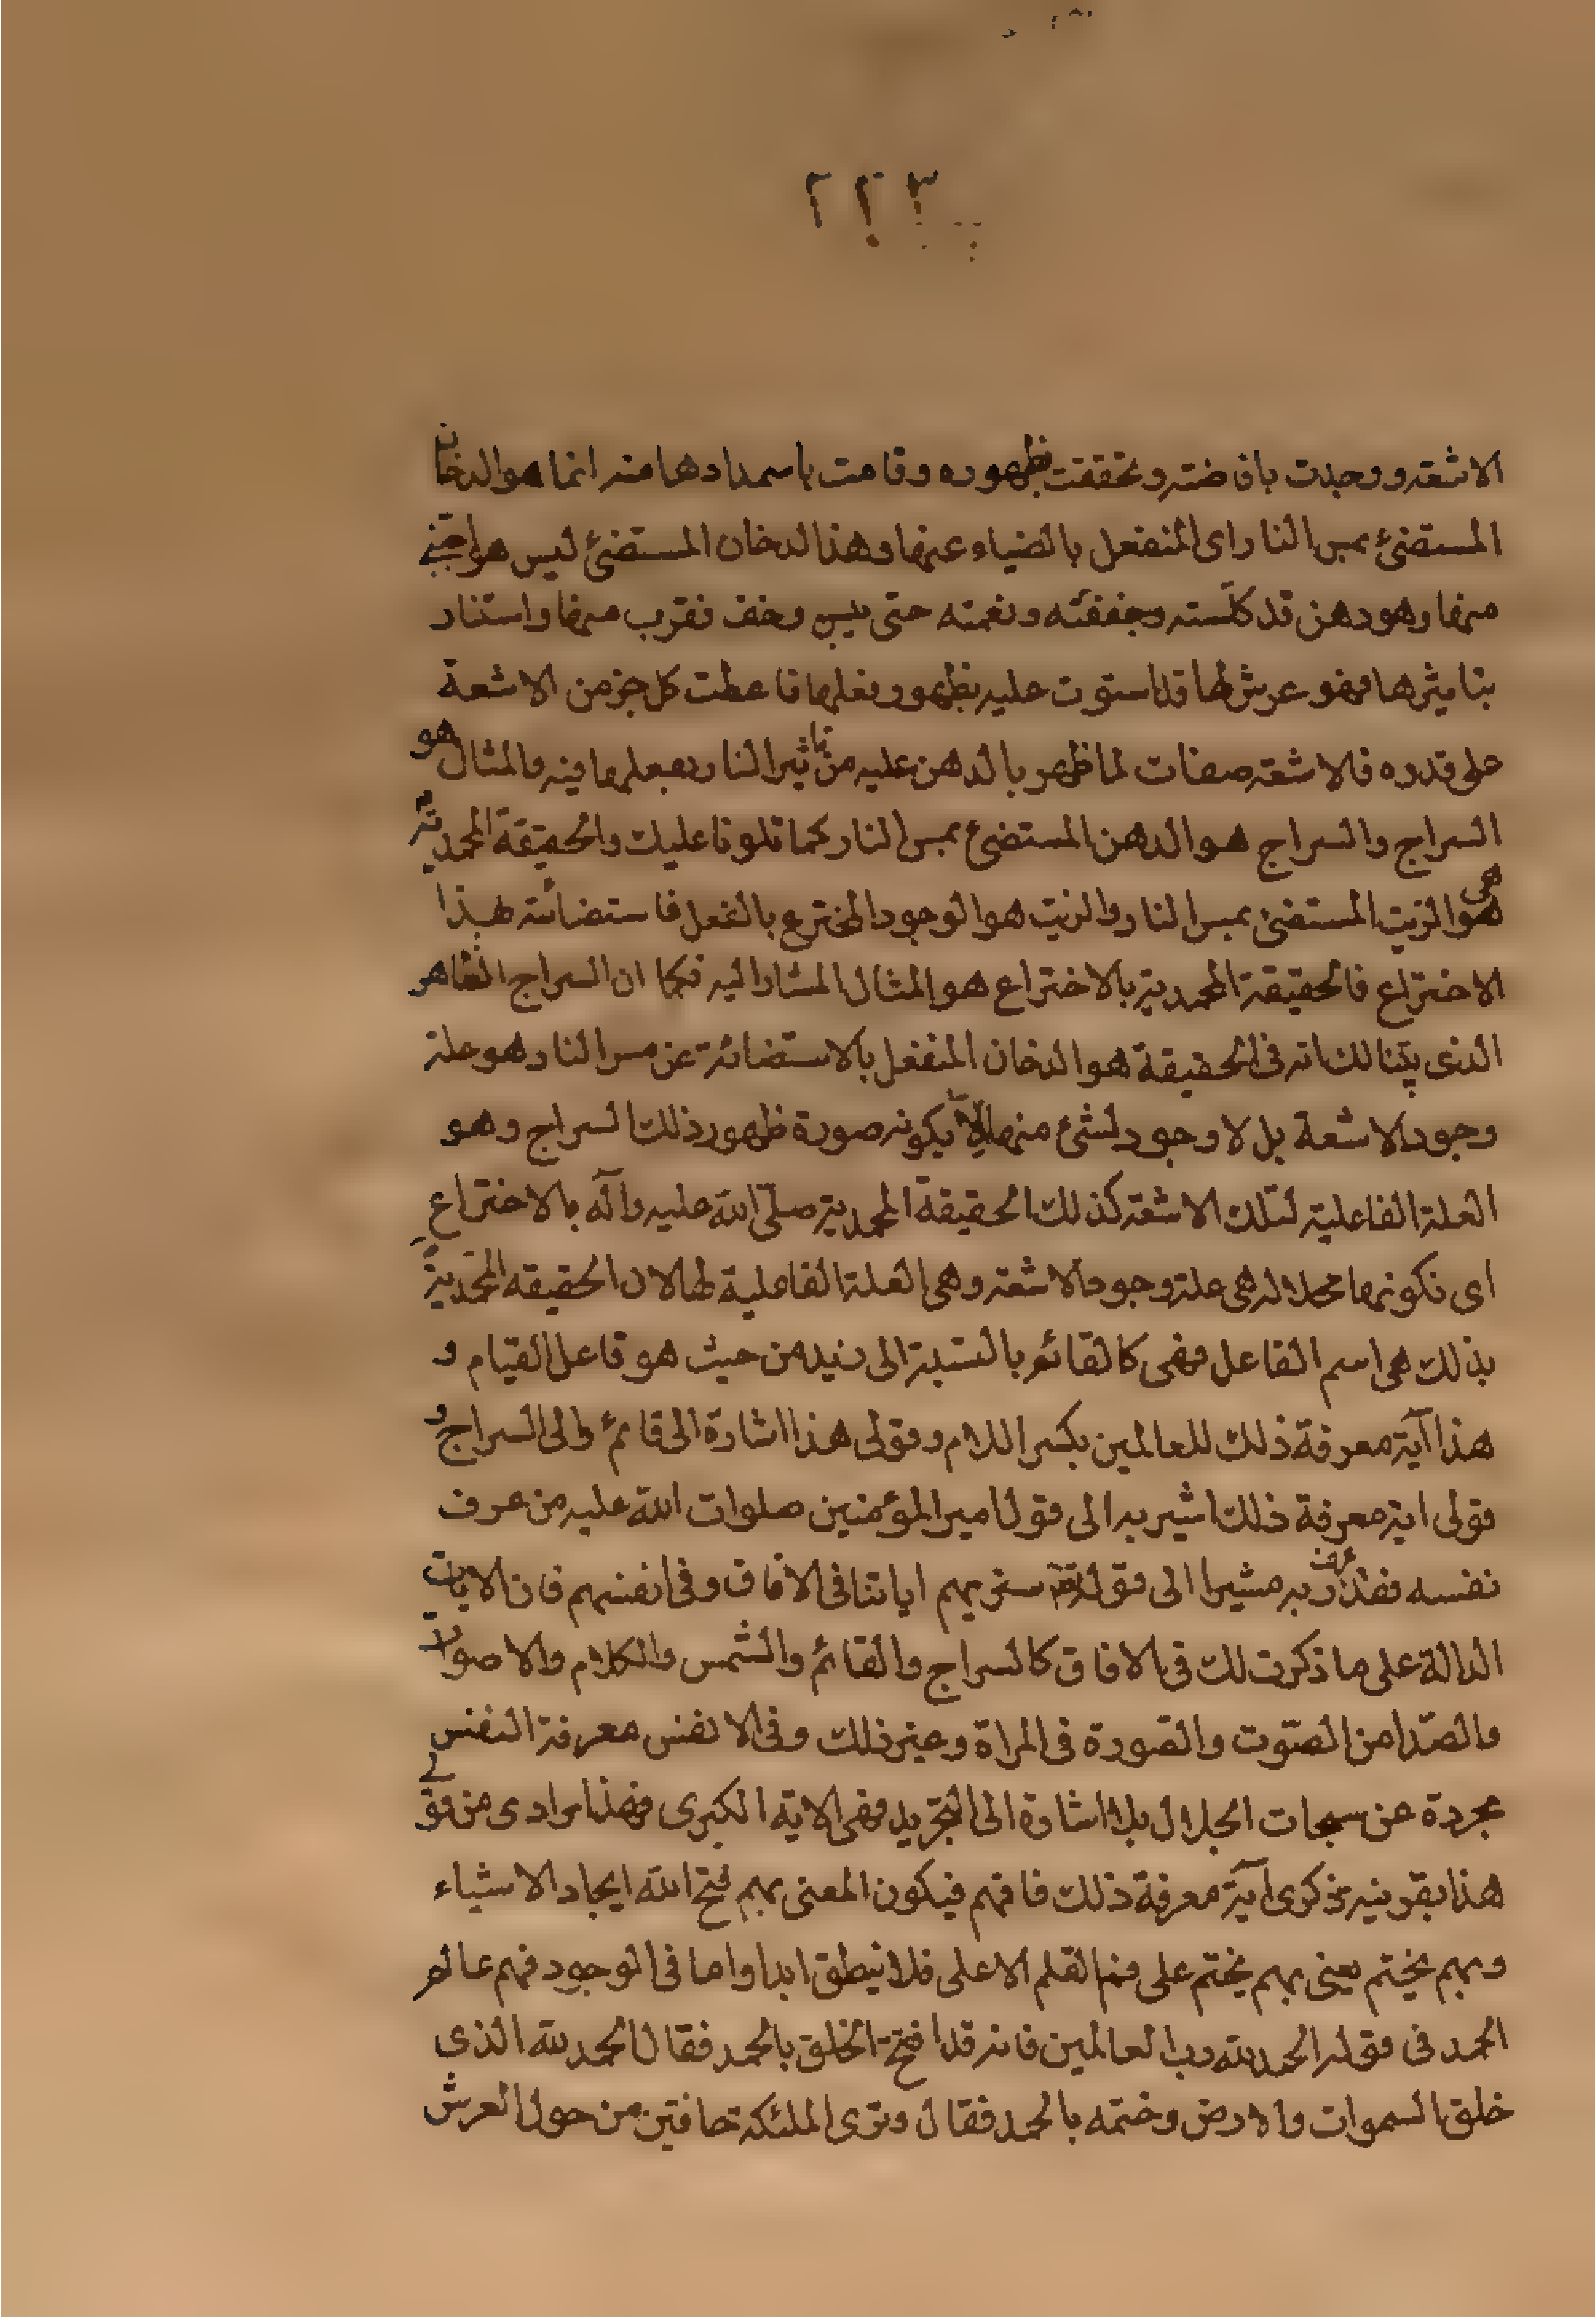 ٢٢٣
الاشعة ووجدت بافاضته وتحققت بظهوره وقامت باستمدادها منه انما هو الدخان
المستضئ بمس النار اى المنفعل بالضياء عنها وهذا الدخان المستضئ ليس هو اجنبى
منها وهو دهن قد كلسته وجففته ونعمته حتى يبس وخف فقرب منها واستنار
بتاثيرها فهو عرش لها قد استوت عليه بظهور فعلها فاعطت كل جزء من الاشعة
على قدره فالاشعة صفات لما ظهر بالدهن عليه من تاثير النار بفعلها فيه والمثال هو
السراج والسراج هو الدهن المستضئ بمس النار كما تلونا عليك والحقيقة المحمدية
هى هو الزيت المستضئ بمس النار والزيت هو الوجود المخترع بالفعل فاستضائته بهذا
الاختراع فالحقيقة المحمدية بالاختراع هو المثال المشار اليه فكما ان السراج الظاهر
الذى بيّنا لك انه فى الحقيقة هو الدخان المنفعل بالاستضائة عن مس النار هو علة
وجود الاشعة بل لا وجود لشئ منها الا بكونه صورة ظهور ذلك السراج وهو
العلة الفاعلية لتلك الاشعة كذلك الحقيقة المحمدية صلّى الله عليه وآله بالاختراع
اى بكونها محلا له هى علة وجود الاشعة وهى العلة الفاعلية لها لان الحقيقه المحمدية
بذلك هى اسم الفاعل فهى كالقائم بالنسبة الى زيد من حيث هو فاعل القيام و
هذا آية معرفة ذلك للعالمين بكسر اللام وقولى هذا اشارة الى قائم والى السراج و
قولى اية معرفة ذلك اشير به الى قول امير المؤمنين صلوات الله عليه من عرف
نفسه فقد عرف ربه مشيرا الى قوله تعالى سنريهم اياتنا فى الافاق وفى انفسهم فان الايات
الدالة على ما ذكرت لك فى الافاق كالسراج والقائم والشمس والكلام والاصوات
والصّدا من الصّوت والصّورة فى المراة وغير ذلك وفى الانفس معرفة النفس
مجردة عن سبحات الجلال بلا اشارة الى التجريد فهى الاية الكبرى فهذا مرادى من قولى
هذا بقرينة ذكرى آية معرفة ذلك فافهم فيكون المعنى بهم فتح الله ايجاد الاشياء
وبهم يختم يعنى بهم يختم على فم القلم الاعلى فلا ينطق ابدا واما فى الوجود فهم عالم
الحمد فى قوله الحمد لله رب العالمين فانه قد افتتح الخلق بالحمد فقال الحمد لله الذى
خلق السموات والارض وختمه بالحمد فقال وترى الملئكة حافّين من حول العرش